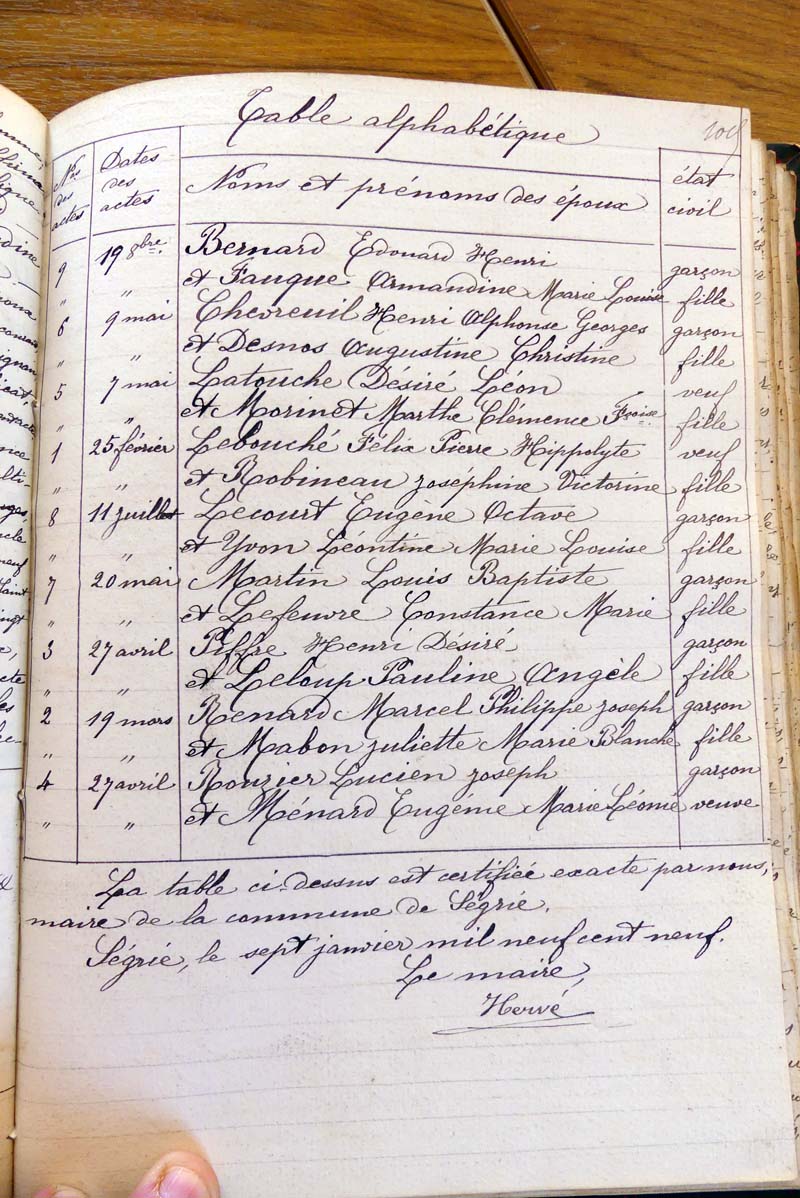 Table alphabétique
Nos des actes Dates des actes Noms et prénoms des époux état civil
9 19 8bre. Bernard Edouard Henri garçon
" " et Fauque Armandine Marie Louise fille
6 9 mai Chevreuil Henri Alphonse Georges garçon
" " et Desnos Augustine Christine fille
5 7 mai Latouche Désiré Léon veuf
" " et Morinet Marthe Clémence Fçoise. fille
1 25 février Lebouché Félix Pierre Hippolyte veuf
" " et Robineau joséphine Victorine fille
8 11 juillet Lecourt Eugène Octave garçon
" " et Yvon Léontine Marie Louise fille
7 20 mai Martin Louis Baptiste garçon
" " et Lefeuvre Constance Marie fille
3 27 avril Piffre Henri Désiré garçon
" " et Leloup Pauline Angèle fille
2 19 mars Renard Marcel Philippe joseph garçon
" " et Mabon juliette Marie Blanche fille
4 27 avril Rouzier Lucien joseph garçon
" " et Ménard Eugenie Marie Léonie veuve
La table ci-dessus est certifiée exacte par nous,
maire de la commune de Ségrié.
Ségrié, le sept janvier mil neuf cent neuf.
Le maire,
Hervé